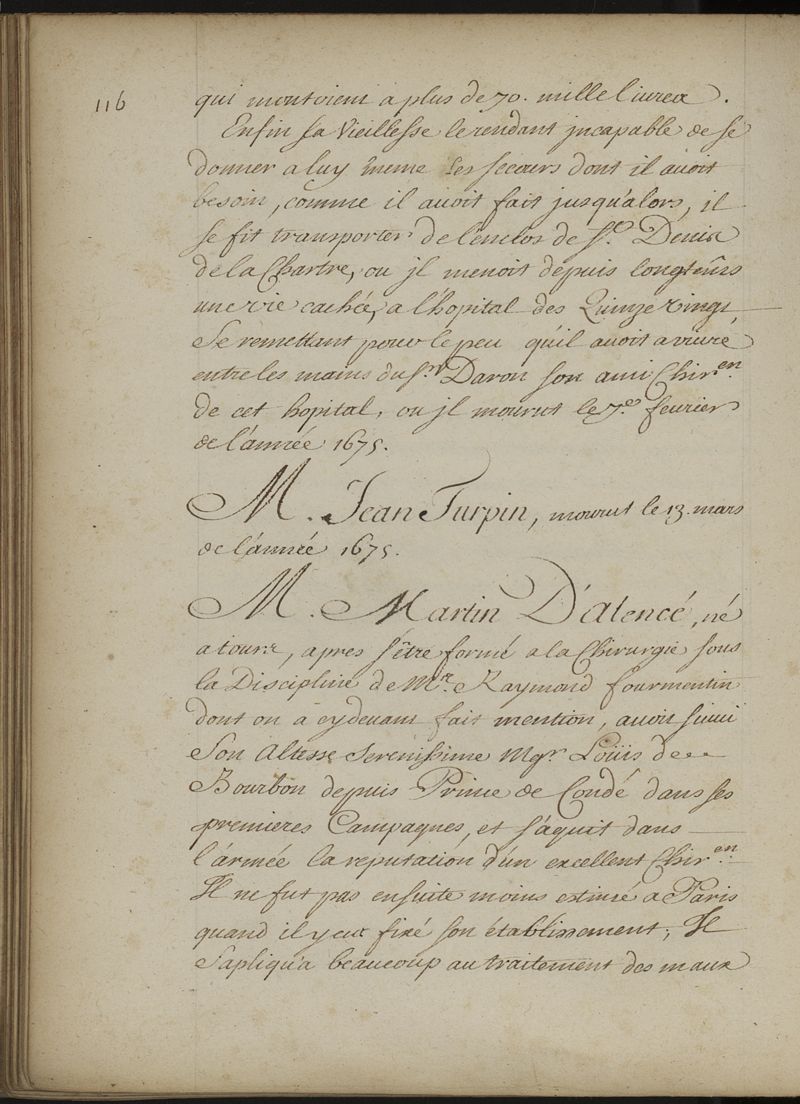 116
qui montoient a plus de 70. mille livres.
Enfin sa Vieillesse le rendant jncapable de se
donner a luy même les secours dont il avoit
besoin, comme il avoit fait jusqu'alors, il
se fit transporter de l'enclos de St. Denis
de la Chartre, ou jl menoit depuis longtêms
une vie cachée, a l'hopital des Quinze vingt,
se remettant pour le peu qu'il avoit a vivre
entre les mains du Sr. Daron son ami Chiren.
de cet hopital, ou jl mourut le 7e. fevrier
de l'année 1675.
M. Jean Turpin, mourut le 13. mars
de l'année 1675.
M. Martin D'alencé, né
a tours, apres s'être formé a la Chirurgie sous
la Discipline de Mr. e Raymond fourmentin
dont on a cydevant fait mention, avoit suivi
Son Altesse Serenissime Mgr. Loüis de
Bourbon depuis Prince de Condé dans ses
premieres Campagnes, et s'aquit dans
l'armée la reputation d'un excellent Chiren.
Il ne fut pas ensuite moins estimé a Paris
quand il y eut fixé son établissement; Il
s'apliqu'a beaucoup au traitement des maux